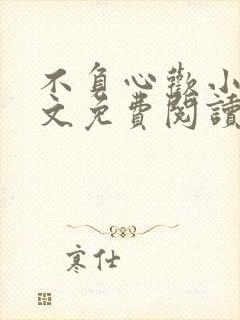 不負心歡小
文免費閱讀
寒仕